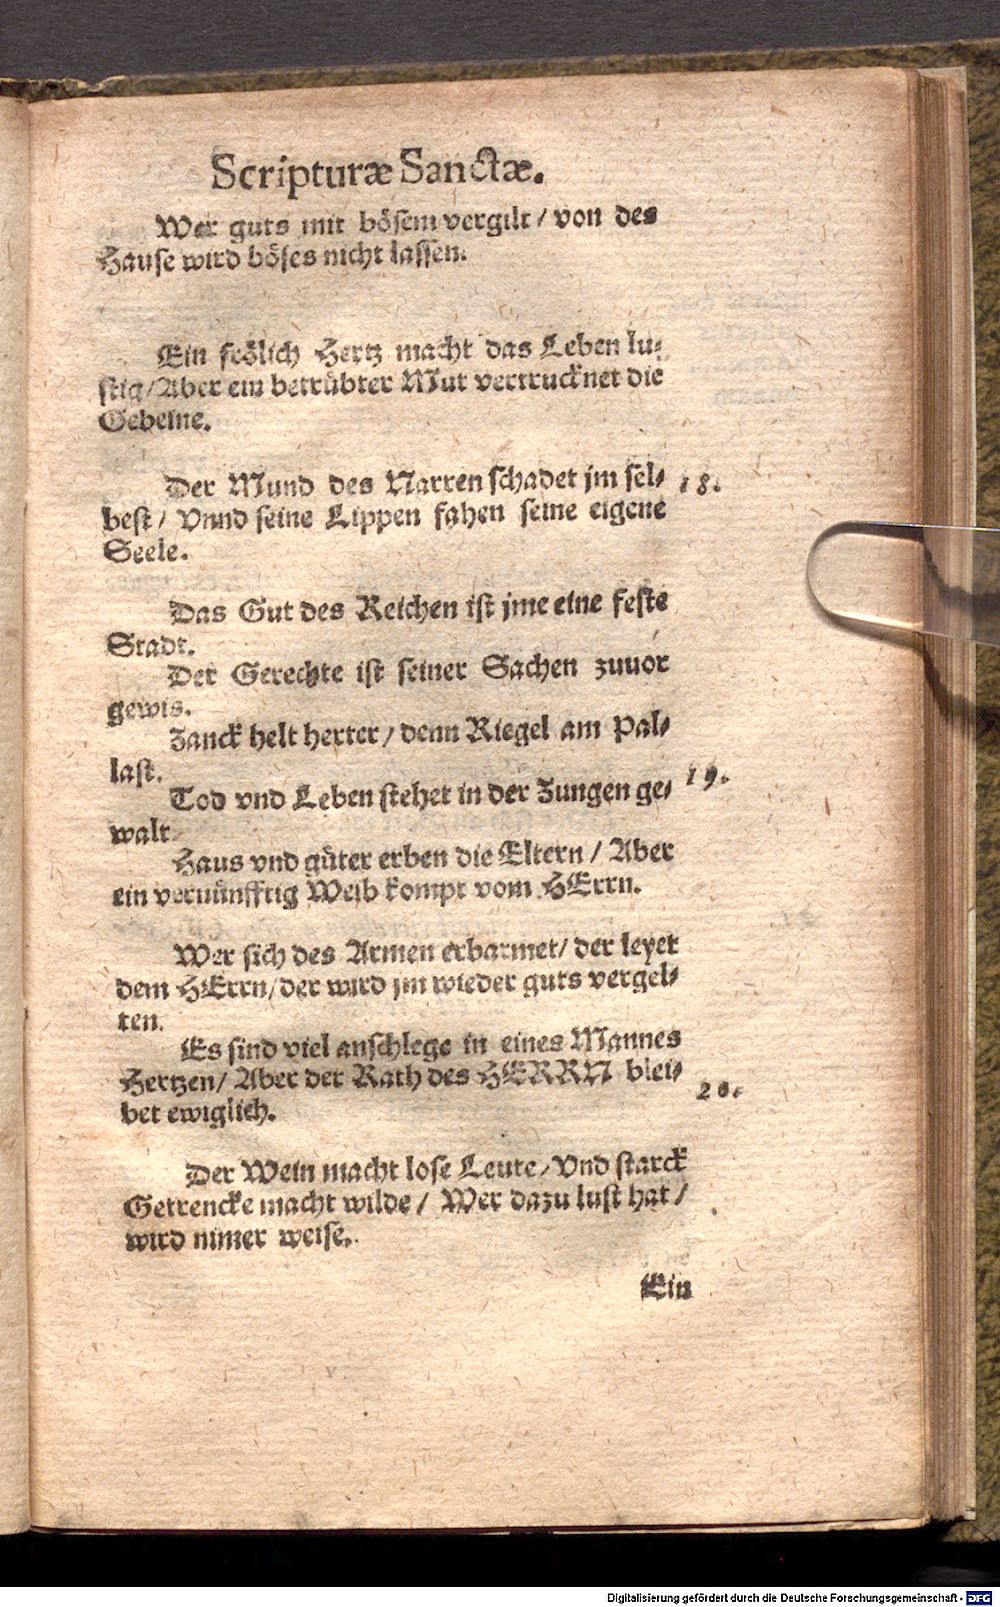 Scripturæ Sanctæ.
Wer guts mit bösem vergilt / von des
Hause wird böses nicht lassen.
Ein frölich Hertz macht das Leben lu⸗
stig / Aber ein betrübter Mut vertrucknet die
Gebeine.
Der Mund des Narren schadet jm sel⸗ 18.
best / Vnnd seine Lippen fahen seine eigene
Seele.
Das Gut des Reichen ist jme eine feste
Stadt.
Der Gerechte ist seiner Sachen zuuor
gewis.
Zanck helt herter / denn Riegel am Pal⸗
last.
Tod vnd Leben stehet in der Zungen ge⸗ 19.
walt.
Haus vnd güter erben die Eltern / Aber
ein vernünfftig Weib kompt vom HErrn.
Wer sich des Armen erbarmet / der leyet
dem HErrn / der wird jm wieder guts vergel⸗
ten.
Es sind viel anschlege in eines Mannes
Hertzen / Aber der Rath des HERRN blei⸗
bet ewiglich. 20.
Der Wein macht lose Leute / Vnd starck
Getrencke macht wilde / Wer dazu lust hat /
wird nimer weise.
Ein
Digitalisierung gefördert durch die Deutsche Forschungsgemeinschaft - DFG